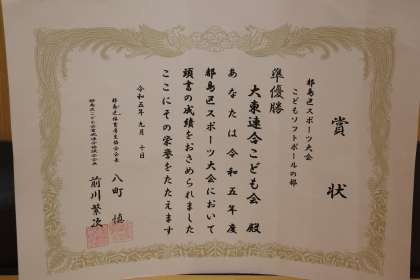 賞状
都島区スポーツ大会
こどもソフトボールの部
準優勝
大東連合こども会 殿
あなたは令和五年度
都島区スポーツ大会において
頭書の成績をおさめられました
ここにその栄誉をたたえます
令和五年九月十日
都島区体育厚生協会会長
八町 慎
前川繁次